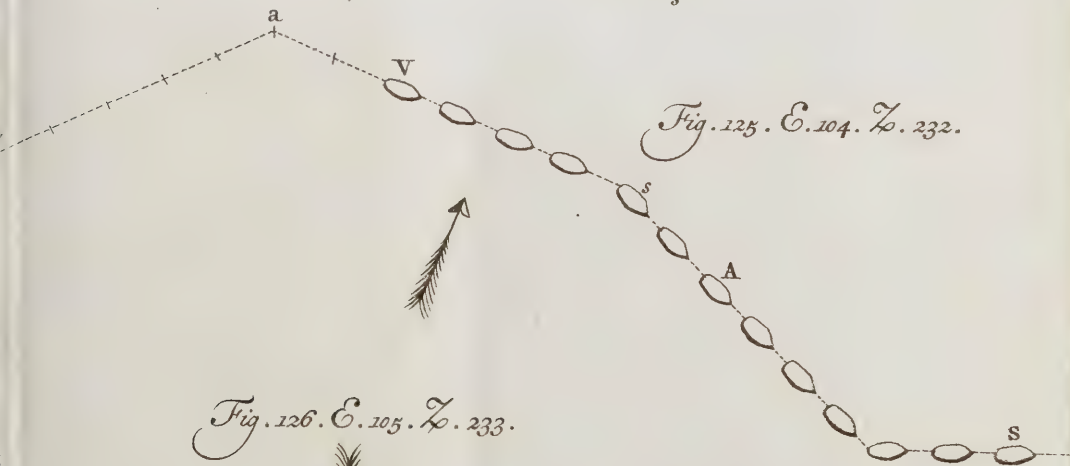 a
V
Fig. 125. E. 104. Z. 232.
s
A
Fig. 126. E. 105. Z. 233.
S